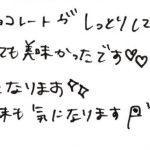 ョコレートがしっとりして
ても美味かったです♡♡
になります✧✧
来も気になります